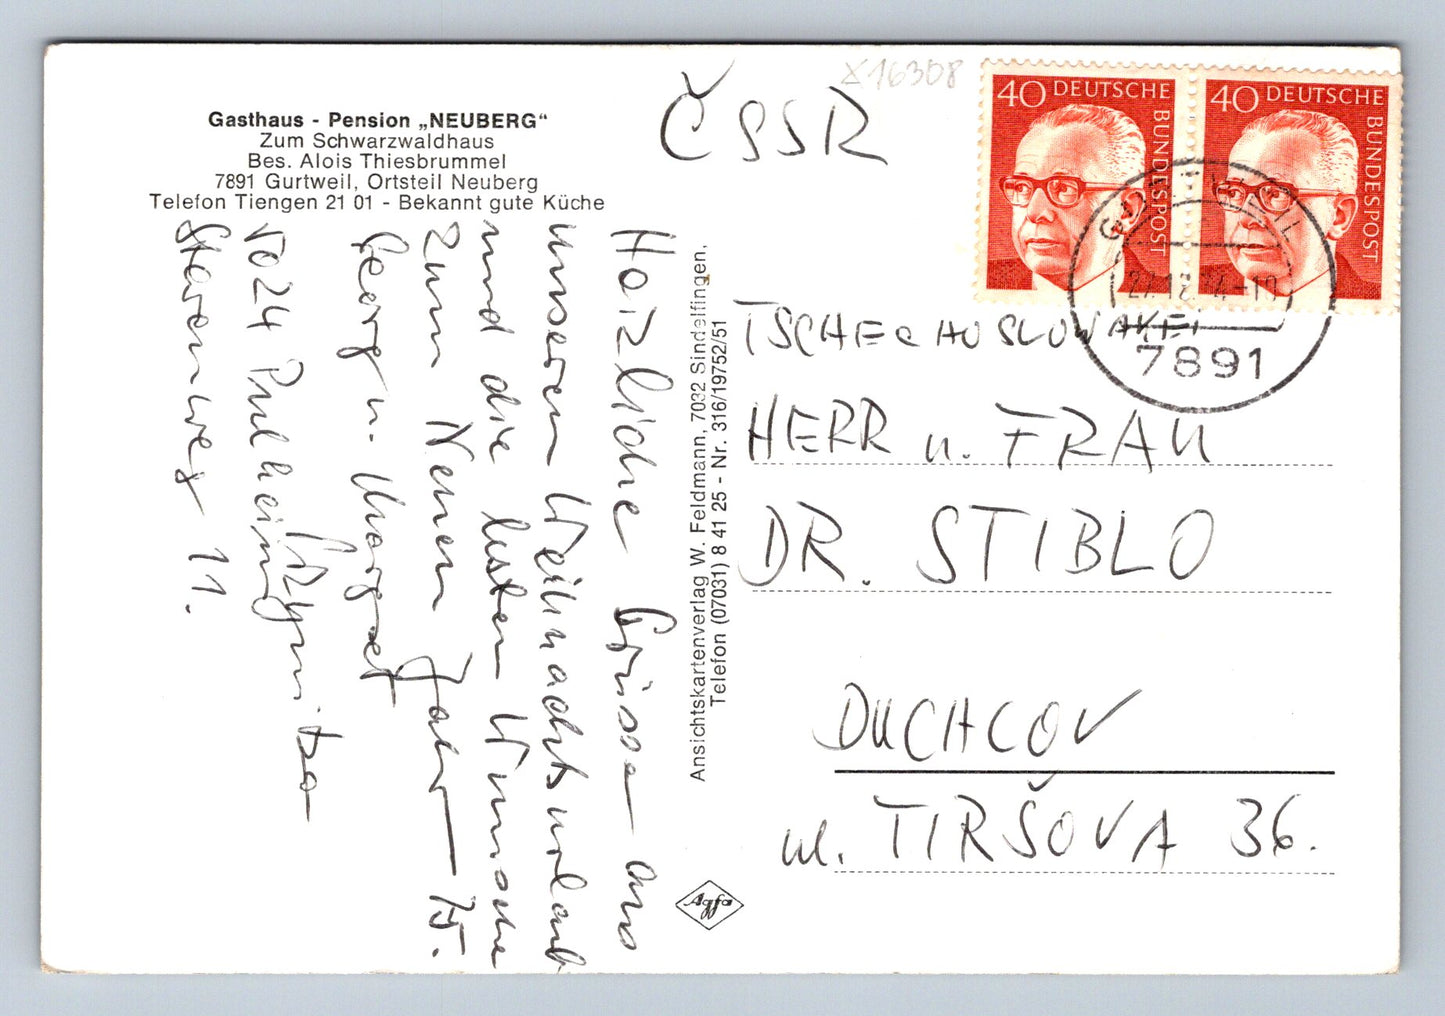 Gasthaus - Pension „NEUBERG"
Zum Schwarzwaldhaus
Bes. Alois Thiesbrummel
7891 Gurtweil, Ortsteil Neuberg
Telefon Tiengen 21 01 - Bekannt gute Küche
Herzliche Grüsse aus
unserem Weihnachtsurlaub
und die besten Wünsche
zum Neuen Jahr 75.
Georg u. Margret
5024 Pulheim
Starenweg 11.
Ansichtskartenverlag W. Feldmann, 7032 Sindelfingen,
Telefon (07031) 8 41 25 - Nr. 316/19752/51
Agfa
X16308
ČSSR
40 DEUTSCHE BUNDESPOST
40 DEUTSCHE BUNDESPOST
GURTWEIL
7891
TSCHECHOSLOWAKEI
HERR u. FRAU
DR. STIBLO
DUCHCOV
ul. TIRŠOVA 36.